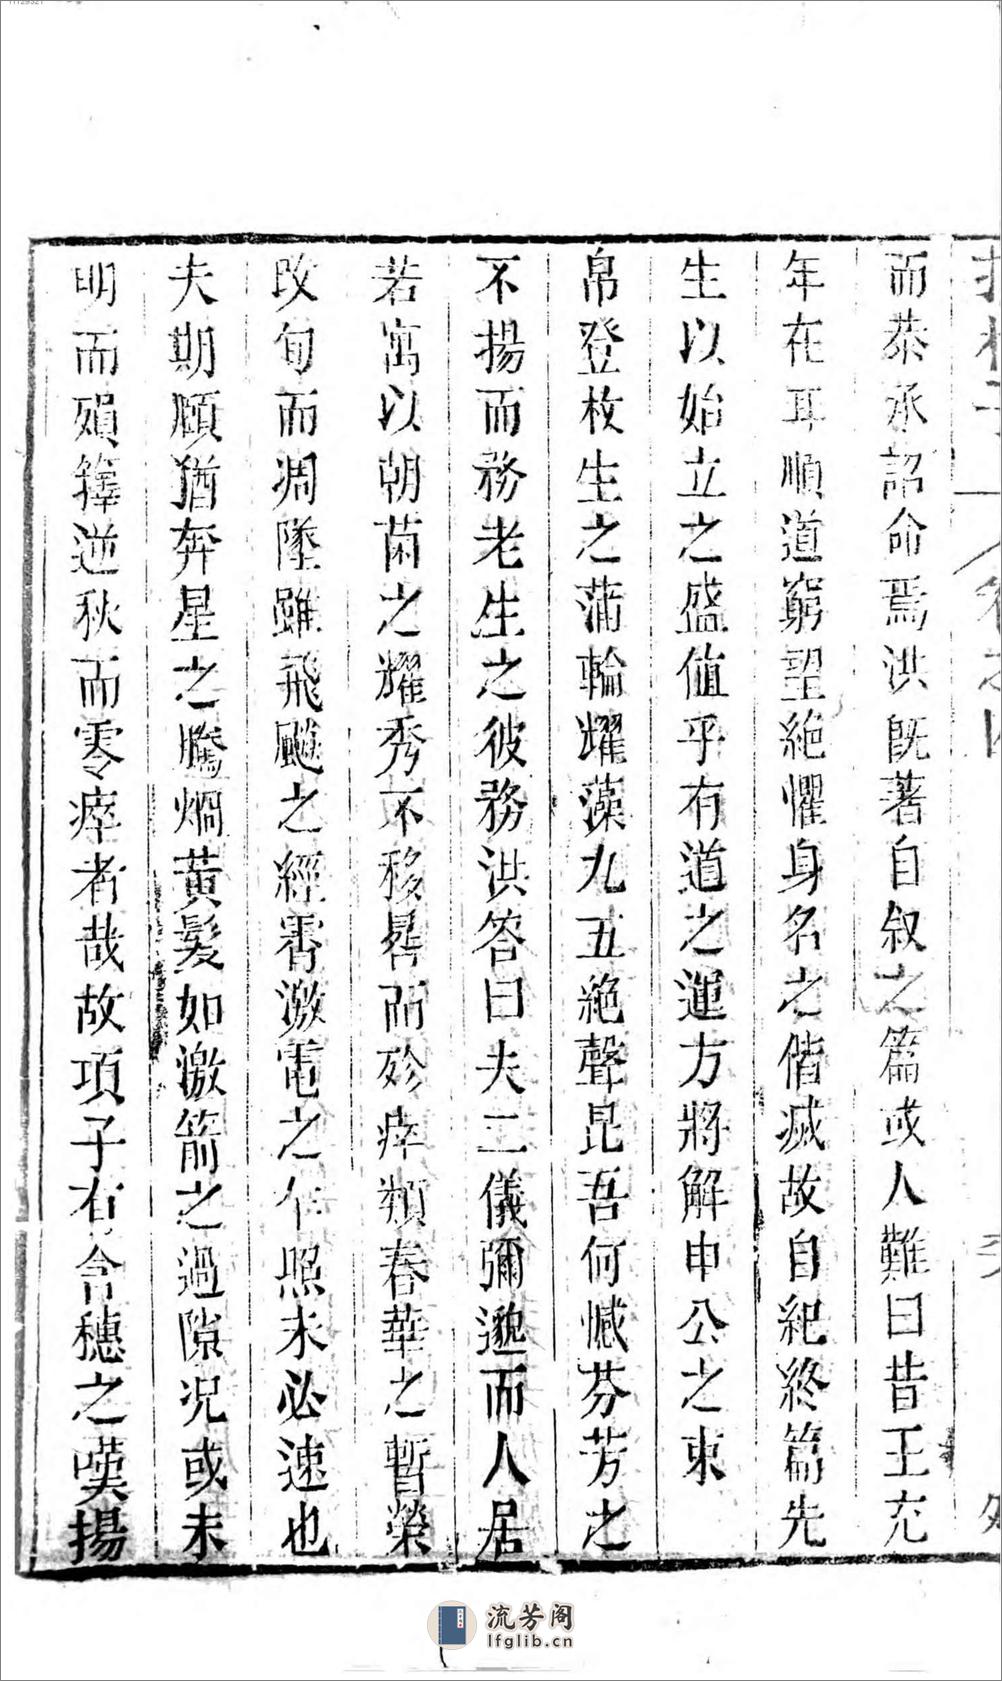 而恭承詔命焉洪旣著自叙之篇或人難曰昔王充
年在耳順道窮望絶懼身名之偕滅故自紀終篇先
生以始立之盛值乎有道之運方將解申公之束
帛登枚生之蒲輪耀藻九五絶聲昆吾何憾芬芳之
不揚而務老生之彼務洪答曰夫二儀彌邈而人居
若寓以朝菌之耀秀不移晷而殄瘁類春華之暫榮
改旬而凋墜雖飛飈之經霄激電之乍照未必速也
夫期頤猶奔星之騰烟黃髮如激箭之過隙况或未
明而殞籜逆秋而零瘁者哉故項子有含穗之嘆揚
流芳阁
lfglib.cn